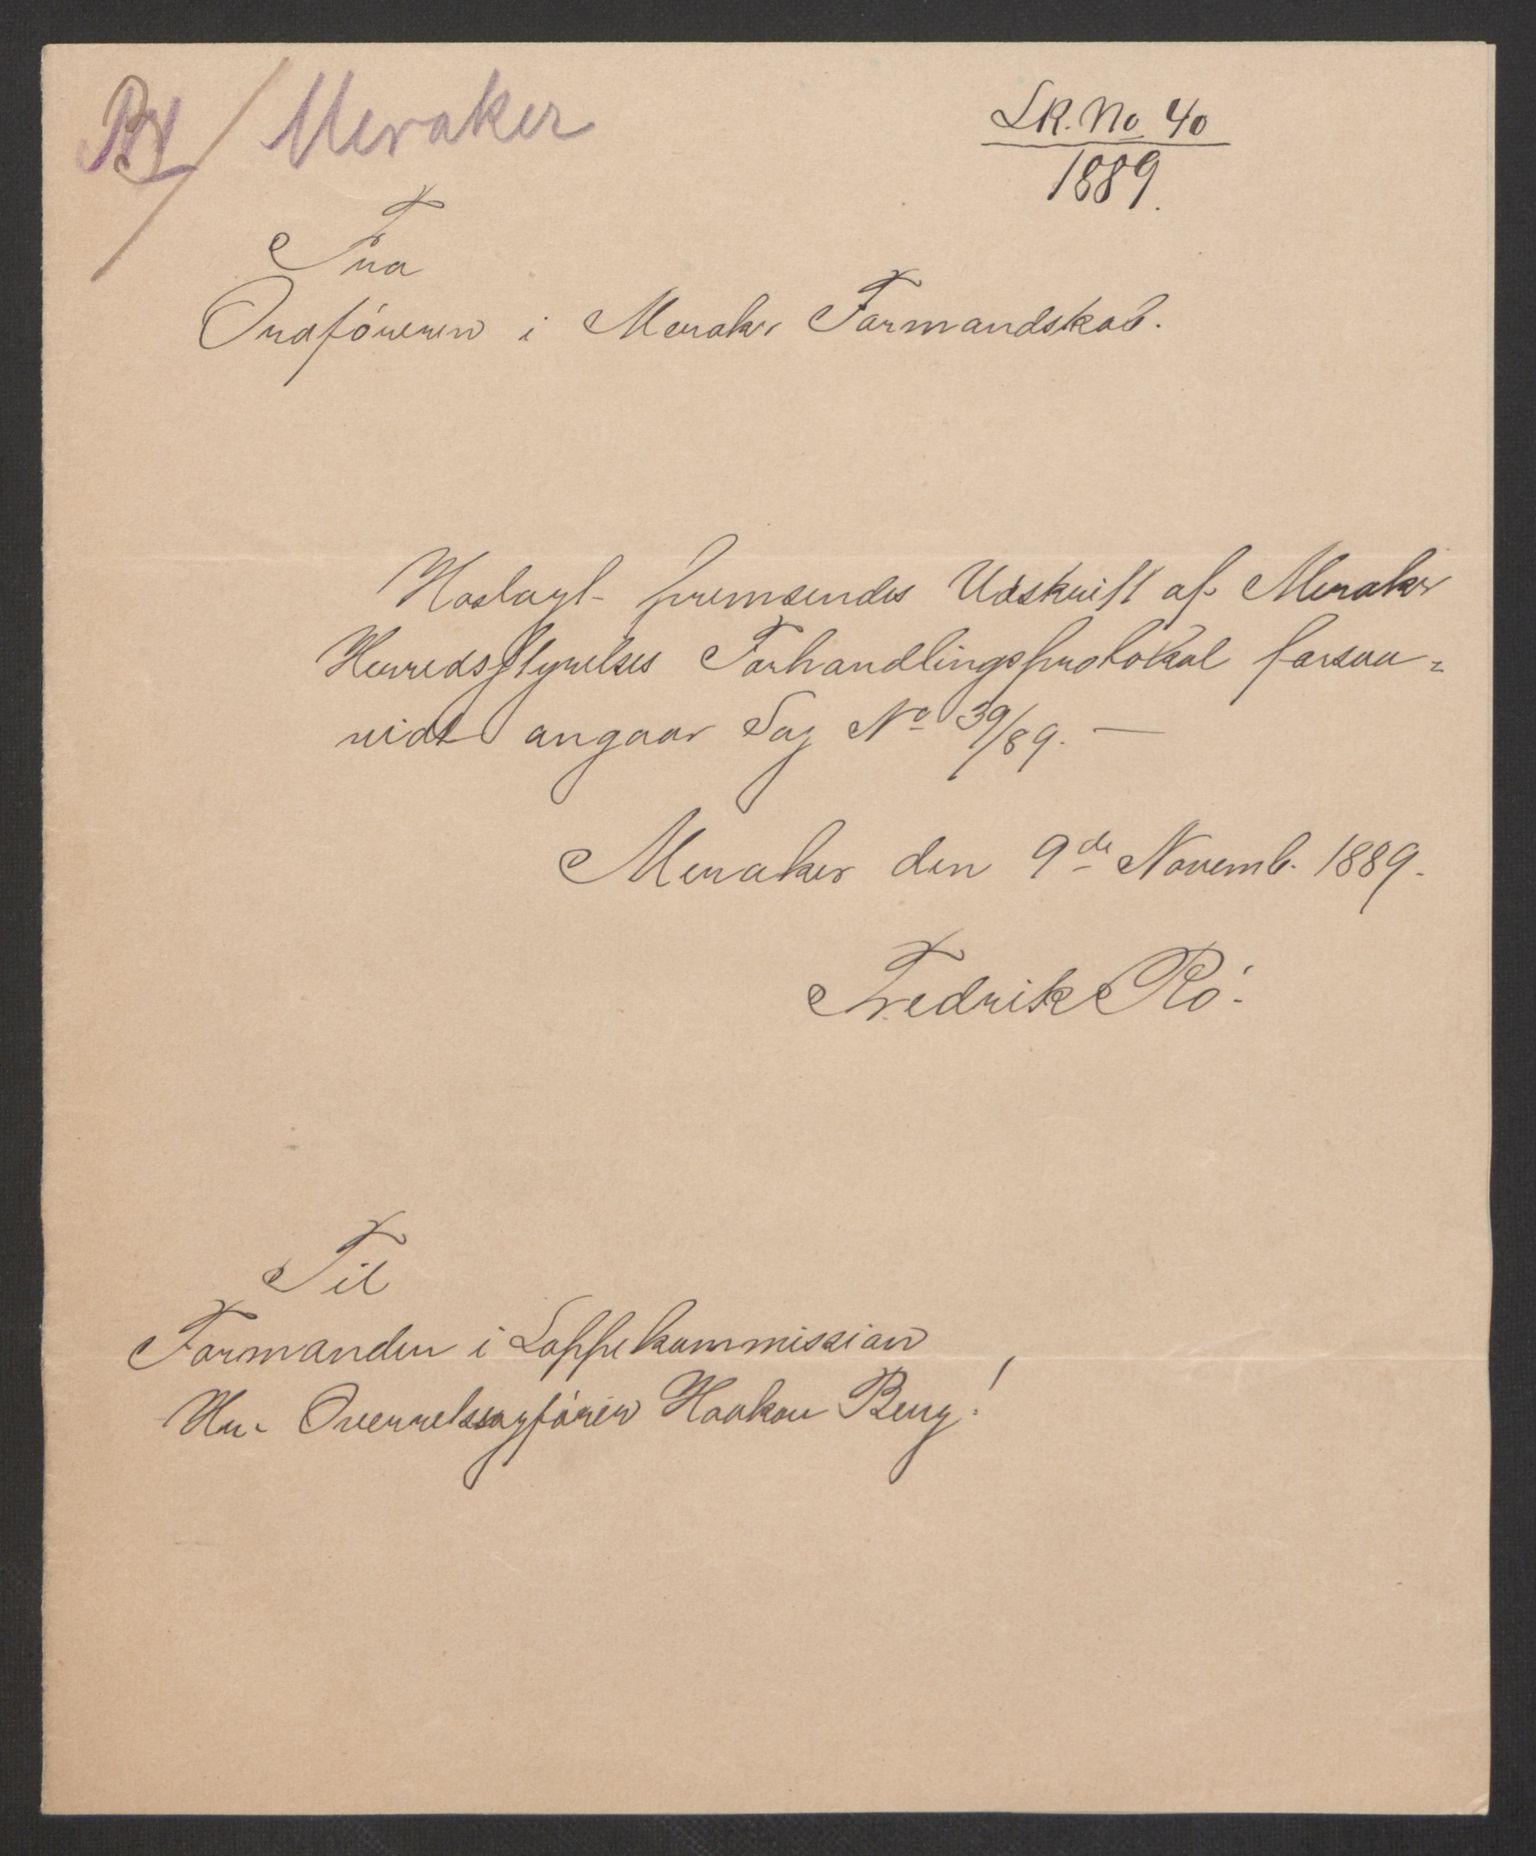 Meraker
LR. No 40
1889.
Fra
Ordføreren i Meraker Formandskab.
Hoslagt fremsendes Udskrift af Meraker
Herredsstyrelses Forhandlingsprotokol forsaa-
vidt angaar Sag No 39/89. —
Meraker den 9de Novemb. 1889.
Fredrik Rø.
Til
Formanden i Lappekommission
Hr. Overretssagfører Haakon Berg!